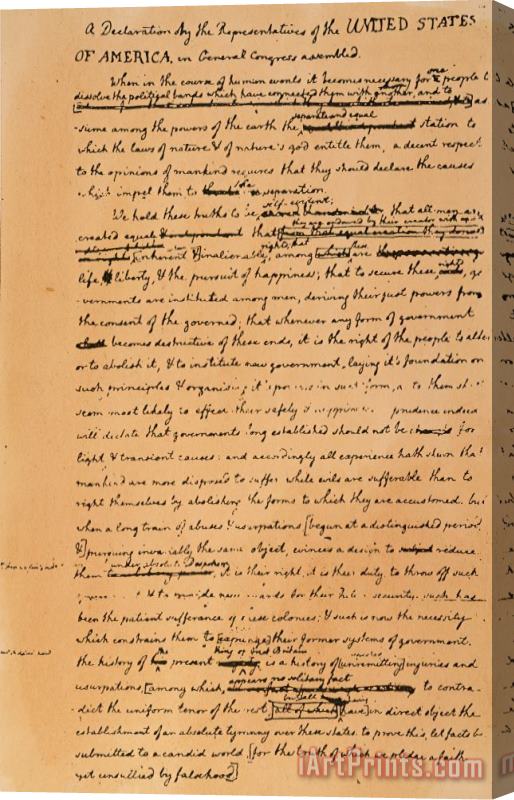 A Declaration by the Representatives of the UNITED STATES
OF AMERICA, in General Congress assembled.
When in the course of human events it becomes necessary for one people to
dissolve the political bands which have connected them with another, and to
as
separate and equal
sume among the powers of the earth the station to
which the laws of nature & of nature's god entitle them, a decent respect
to the opinions of mankind requires that they should declare the causes
which impel them to the separation.
self-evident;
We hold these truths to be that all men are
they are endowed by their creator with
created equal & independant that from that equal creation they derive
rights; that
inherent & inalienable, among which are
these
life, & liberty, & the pursuit of happiness; that to secure these
rights
ends, go
vernments are instituted among men, deriving their just powers from
the consent of the governed; that whenever any form of government
shall becomes destructive of these ends, it is the right of the people to alter
or to abolish it, & to institute new government, laying it's foundation on
such principles & organising it's powers in such form, as to them shall
seem most likely to effect their safety & happiness. prudence indeed
will dictate that governments long established should not be changed for
light & transient causes: and accordingly all experience hath shewn that
mankind are more disposed to suffer while evils are sufferable, than to
right themselves by abolishing the forms to which they are accustomed. but
when a long train of abuses & usurpations [begun at a distinguished period
&] pursuing invariably the same object, evinces a design to subject reduce
under absolute despotism
them it is their right, it is their duty, to throw off such
& to provide new guards for their future security. such has
been the patient sufferance of these colonies; & such is now the necessity
which constrains them to [expunge] their former systems of government.
the king of Great Britain
the history of his present is a history of [unremitting] injuries and
appears no solitary fact
usurpations, [among which, to contra-
but all
dict the uniform tenor of the rest [all of which] [have] in direct object the
establishment of an absolute tyranny over these states. to prove this, let facts be
submitted to a candid world, [for the truth of which we pledge a faith
yet unsullied by falsehood]
ArtPrints.com